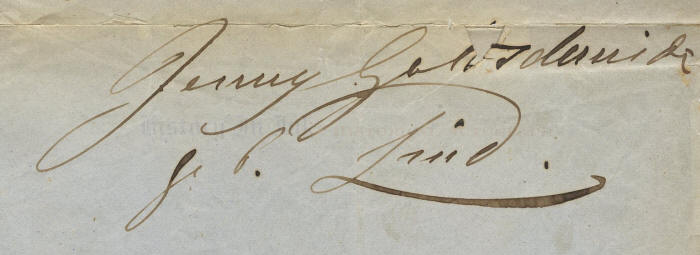 Jenny Goldschmidt
g. b. Lind.